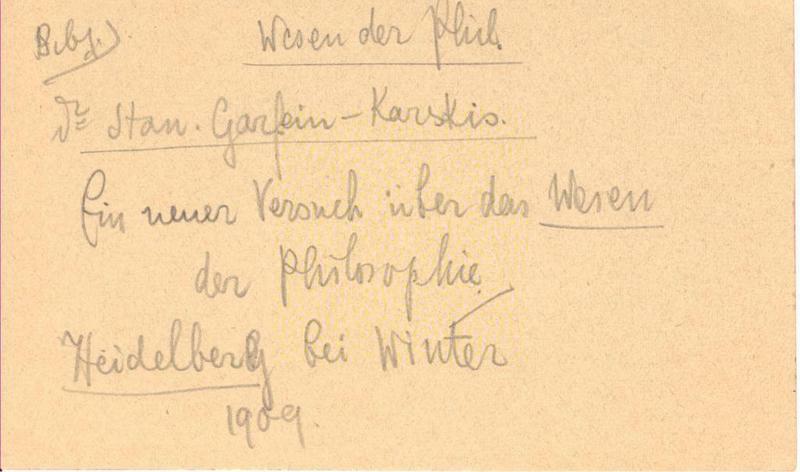 Bibl.) Wesen der Phil.
Dr Stan. Garfein-Karskis.
Ein neuer Versuch über das Wesen
der Philosophie
Heidelberg bei Winter
1909.